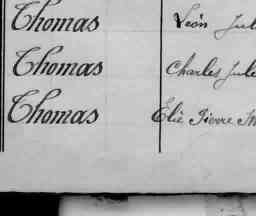 Thomas Léon Jul
Thomas Charles Jule
Thomas Elie Pierre